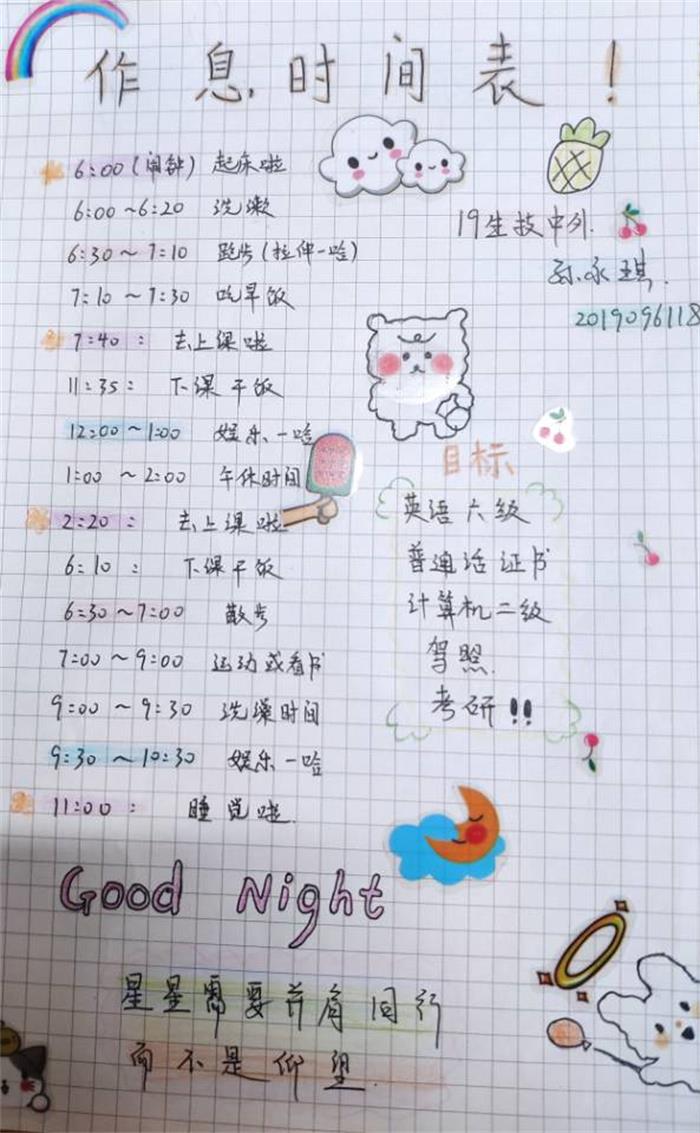 作息时间表！
6:00(闹钟) 起床啦
6:00~6:20 洗漱
6:30~7:10 跑步(拉伸一哈)
7:10~7:30 吃早饭
7:40: 去上课啦
11:35: 下课干饭
12:00~1:00 娱乐一哈
1:00~2:00 午休时间
2:20: 去上课啦
6:10: 下课干饭
6:30~7:00 散步
7:00~9:00 运动或看书
9:00~9:30 洗澡时间
9:30~10:30 娱乐一哈
11:00: 睡觉啦.
19生技中外.
孙永琪.
2019096118
目标
英语六级
普通话证书
计算机二级
驾照.
考研!!
Good Night
星星需要并肩同行
而不是仰望.